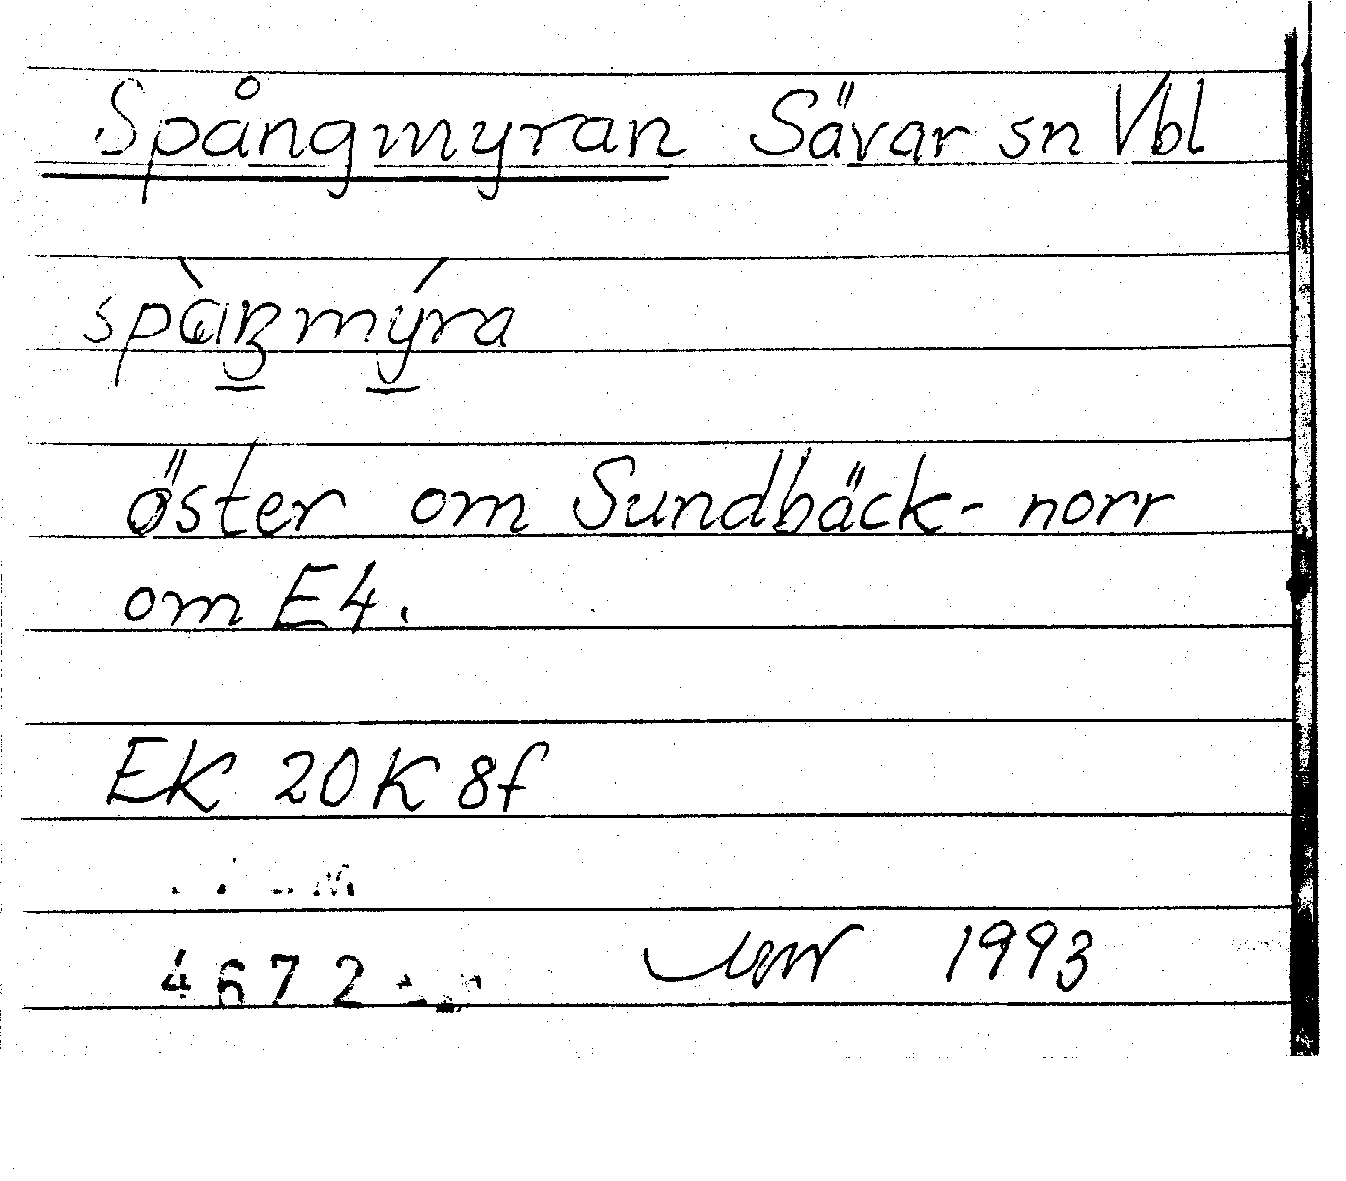 Spångmyran Sävar sn Vbl
öster om Sundbäck - norr
om E4.
EK 20K8f
4672 1993